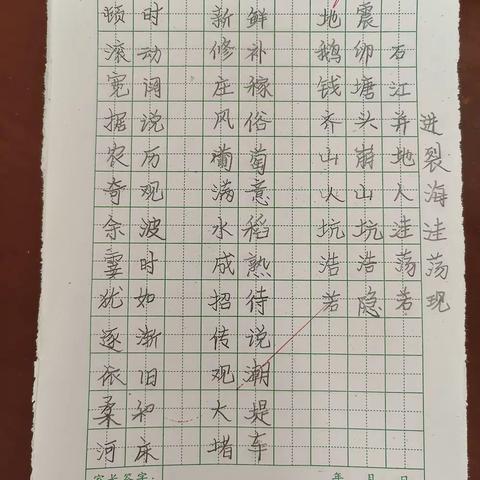 顿时 新鲜 地震
滚动 修补 鹅卵石
宽阔 庄稼 钱塘江
据说 风俗 齐头并进
农历 葡萄 山崩地裂
奇观 满意 人山人海
余波 水稻 坑坑洼洼
霎时 成熟 浩浩荡荡
犹如 招待 若隐若现
逐渐 传说
依旧 观潮
柔和 大堤
河床 堵车
家长签字: 年 月 日